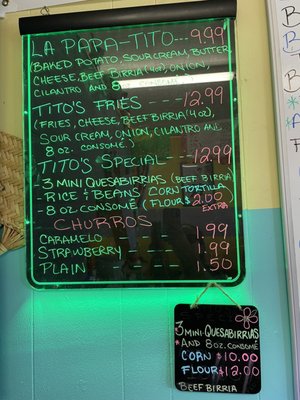 LA PAPA-TITO---9.99
(BAKED POTATO, SOUR CREAM, BUTTER,
CHEESE, BEEF BIRRIA (4oz), ONION,
CILANTRO AND 8oz CONSOME)
TITO'S FRIES ---12.99
(FRIES, CHEESE, BEEF BIRRIA (4oz),
SOUR CREAM, ONION, CILANTRO AND
8oz. CONSOME.)
TITO'S SPECIAL----12.99
-3 MINI QUESABIRRIAS (BEEF BIRRIA)
-RICE & BEANS CORN TORTILLA
-8oz CONSOME (FLOUR $2.00
EXTRA
CHURROS
CARAMELO - - - 1.99
STRAWBERRY - - - 1.99
PLAIN - - - - 1.50
3 MINI-QUESABIRRIAS
*AND 8oz. CONSOMÉ
CORN $10.00
FLOUR $12.00
BEEF BIRRIA